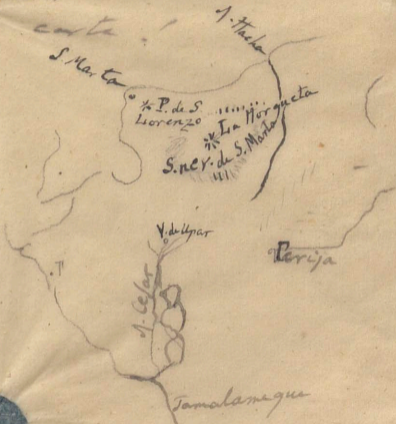 carta 1
S. Marta
J. Hacha
P. de S.
Lorenzo
La Horqueta
S. nev. de S. Marta
V. de Upar
Perija
J. Cesar
Tamalameque